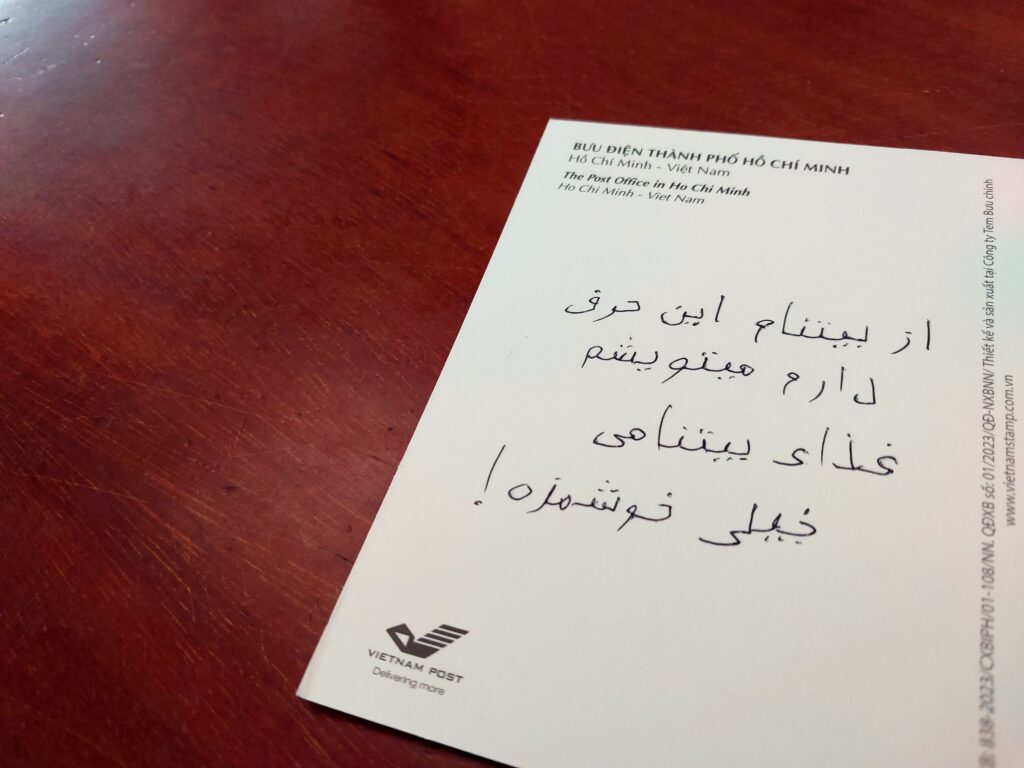 BƯU ĐIỆN THÀNH PHỐ HỒ CHÍ MINH
Hồ Chí Minh - Việt Nam
The Post Office in Ho Chi Minh
Ho Chi Minh - Viet Nam
از ییتنام این حرف
دارم میتویشم
غذای ییتنامی
خیلی خوشمزه!
VIETNAM POST
Delivering more
838-2023/CXBIPH/01-108/NN. QĐXB số: 01/2023/QĐ-NXBNN/ Thiết kế và sản xuất tại Công ty Tem Bưu chính
www.vietnamstamp.com.vn